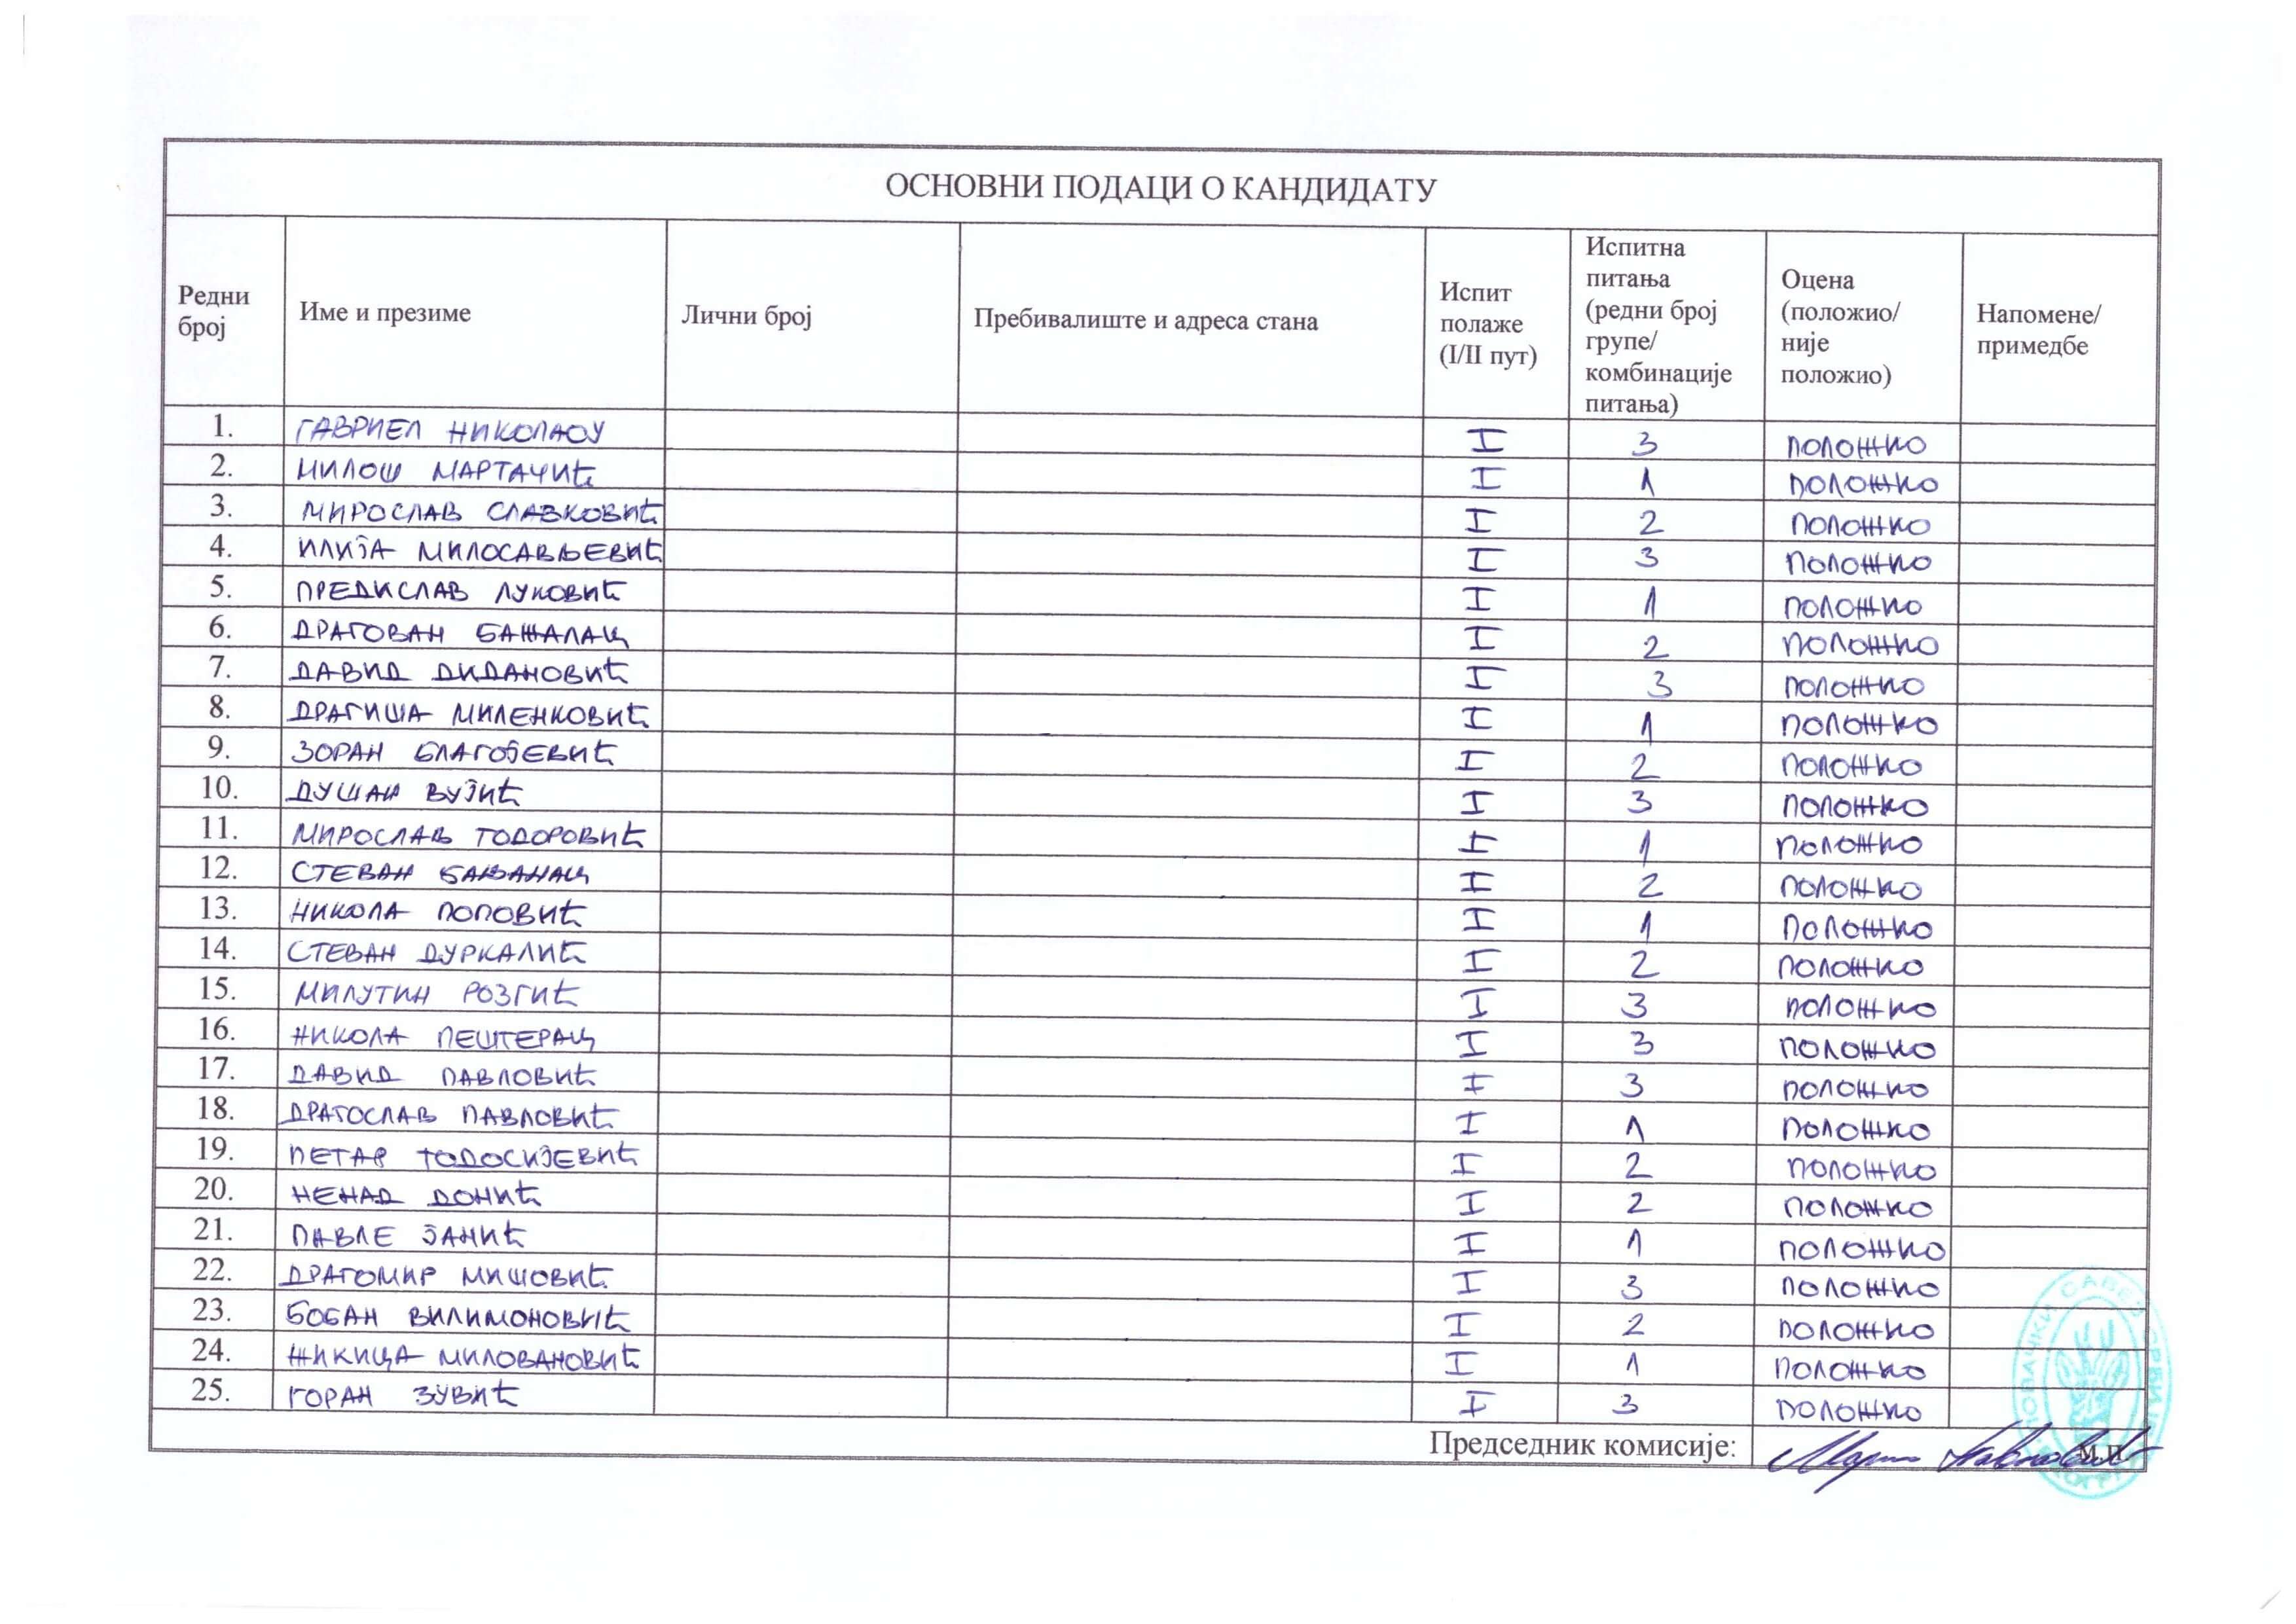 ОСНОВНИ ПОДАЦИ О КАНДИДАТУ
Редни број Име и презиме Лични број Пребивалиште и адреса стана Испит полаже (I/II пут) Испитна питања (редни број групе/ комбинације питања) Оцена (положио/ није положио) Напомене/ примедбе
1. ГАВРИЕЛ НИКОЛАОУ I 3 ПОЛОЖИО
2. МИЛОШ МАРТАЧИЋ I 1 ПОЛОЖИО
3. МИРОСЛАВ СЛАВКОВИЋ I 2 ПОЛОЖИО
4. ИЛИЈА МИЛОСАВЉЕВИЋ I 3 ПОЛОЖИО
5. ПРЕДИСЛАВ ЛУКОВИЋ I 1 ПОЛОЖИО
6. ДРАГОВАН БАЖАЛАЦ I 2 ПОЛОЖИО
7. ДАВИД ДИДАНОВИЋ I 3 ПОЛОЖИО
8. ДРАГИША МИЛЕНКОВИЋ I 1 ПОЛОЖИО
9. ЗОРАН БЛАГОЈЕВИЋ I 2 ПОЛОЖИО
10. ДУШАН ВУЈИЋ I 3 ПОЛОЖИО
11. МИРОСЛАВ ТОДОРОВИЋ I 1 ПОЛОЖИО
12. СТЕВАН I 2 ПОЛОЖИО
13. НИКОЛА ПОПОВИЋ I 1 ПОЛОЖИО
14. СТЕВАН ДУРКАЛИЋ I 2 ПОЛОЖИО
15. МИЛУТИН РОЗГИЋ I 3 ПОЛОЖИО
16. НИКОЛА ПЕШТЕРАЦ I 3 ПОЛОЖИО
17. ДАВИД ПАВЛОВИЋ I 3 ПОЛОЖИО
18. ДРАГОСЛАВ ПАВЛОВИЋ I 1 ПОЛОЖИО
19. ПЕТАР ТОДОСИЈЕВИЋ I 2 ПОЛОЖИО
20. НЕНАД ДОНИЋ I 2 ПОЛОЖИО
21. ПАВЛЕ ЈАНИЋ I 1 ПОЛОЖИО
22. ДРАГОМИР МИШОВИЋ I 3 ПОЛОЖИО
23. БОБАН ВИЛИМОНОВИЋ I 2 ПОЛОЖИО
24. ЖИКИЦА МИЛОВАНОВИЋ I 1 ПОЛОЖИО
25. ГОРАН ЗУВИЋ I 3 ПОЛОЖИО
Председник комисије: М.П.